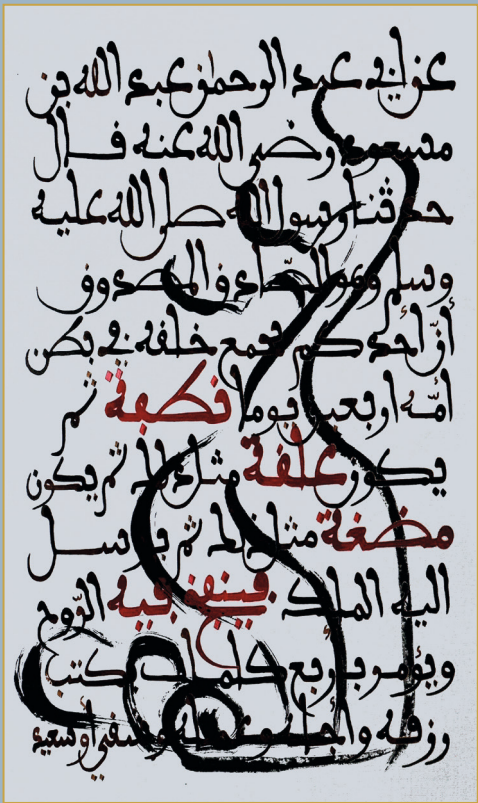 عن أبي عبد الرحمن عبد الله بن
مسعود رضي الله عنه قال
حدثنا رسول الله صلى الله عليه
وسلم وهو الصّادق المصدوق
أنّ أحدكم يجمع خلقه في بطن
امّه اربعين يوما نطفة ثم
يكون علقة مثل ذلك ثم يكون
مضغة مثل ذلك ثم يرسل
اليه الملك فينفخ فيه الرّوح
ويؤمر بأربع كلمات بكتب
رزقه وأجله وعمله وشقي أو سعيد